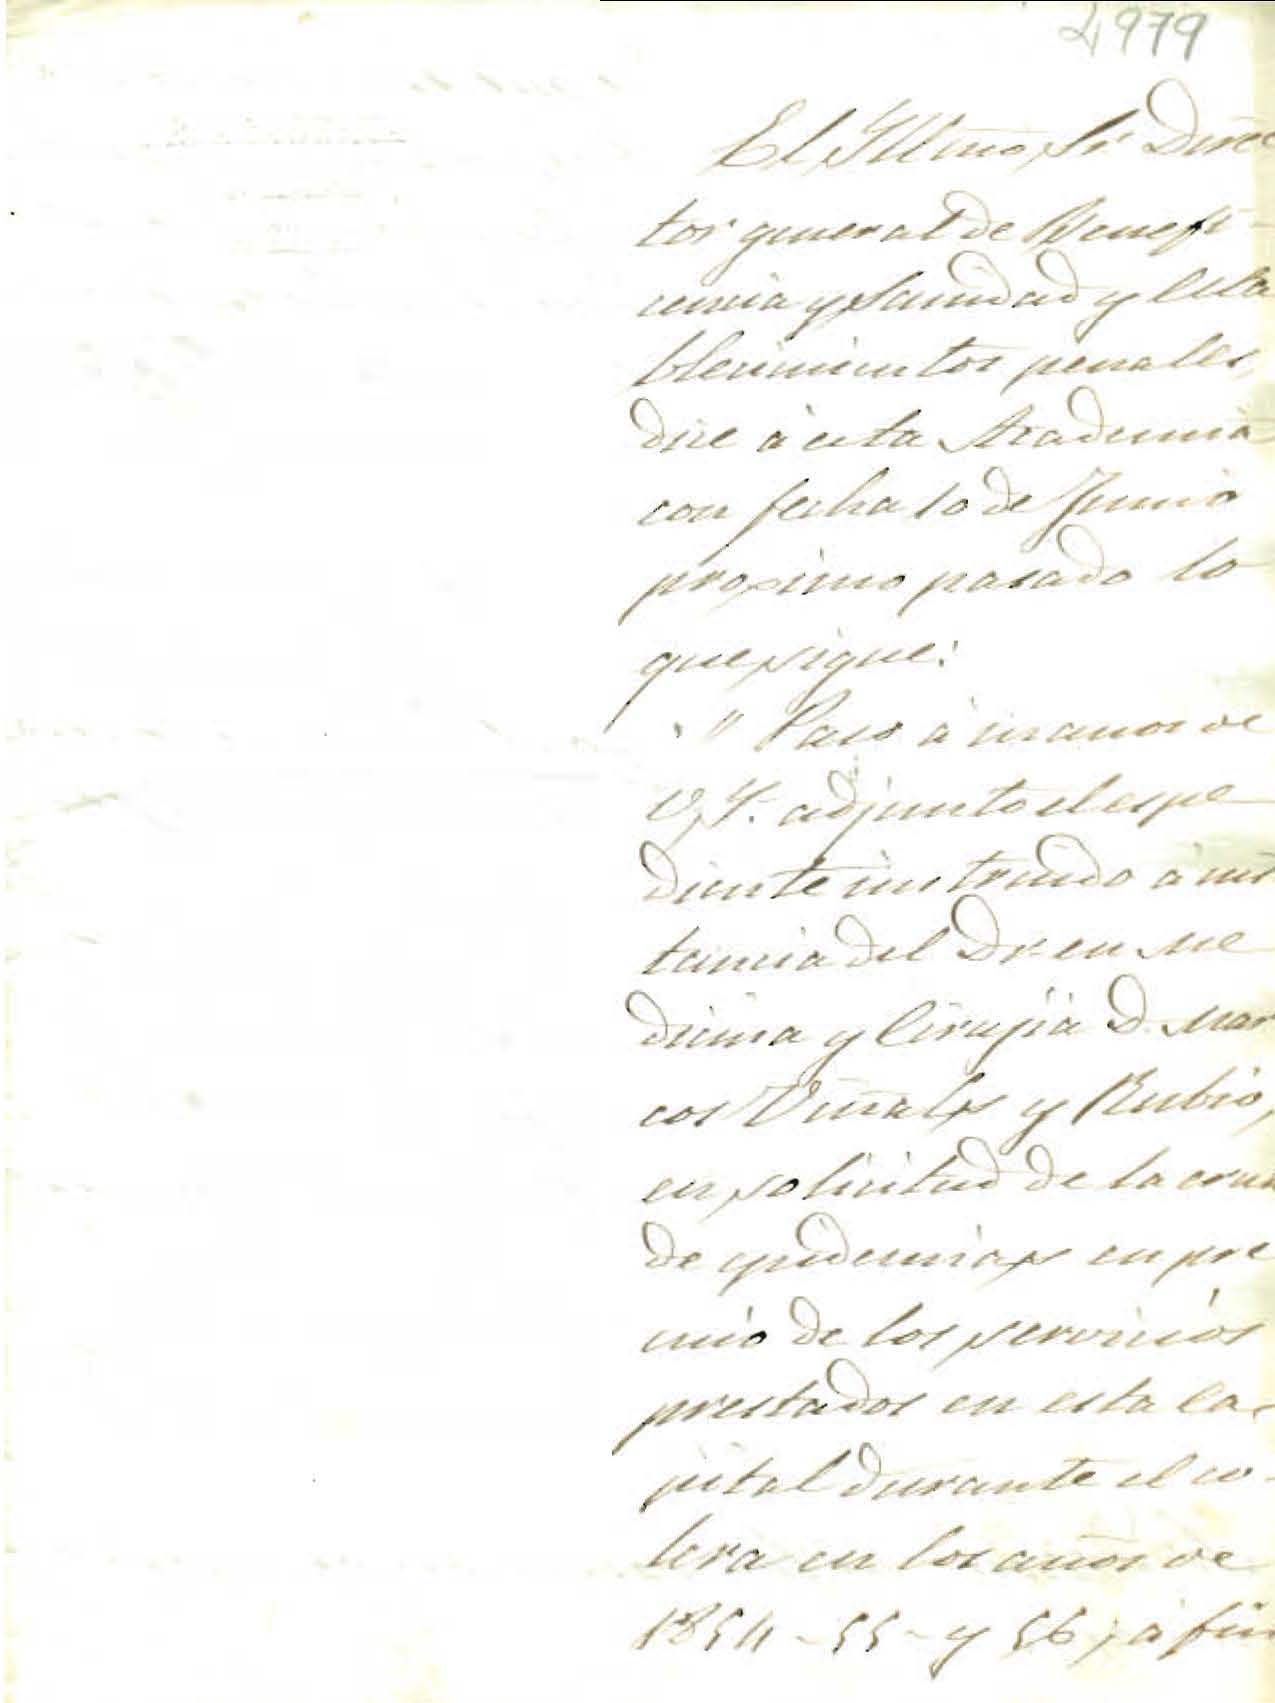 4979
El Yltmo, Sr Direc
tor general de Benefi-
cencia y Sanidad y Esta
blecimientos penales,
dice á esta Academia
con fecha 10 de Junio
proximo pasado lo
que sigue:
" Paso á manos de
V. Y. adjunto el espe
diente instruido á ins
tancia del Dr en Me
dicina y Cirujía D. Mar
cos Viñals y Rubio,
en solicitud de la cruz
de epidemias en pre
mio de los servicios
prestados en esta ca-
pital durante el co-
lera en los años de
1854 - 55 - y 56, á fin